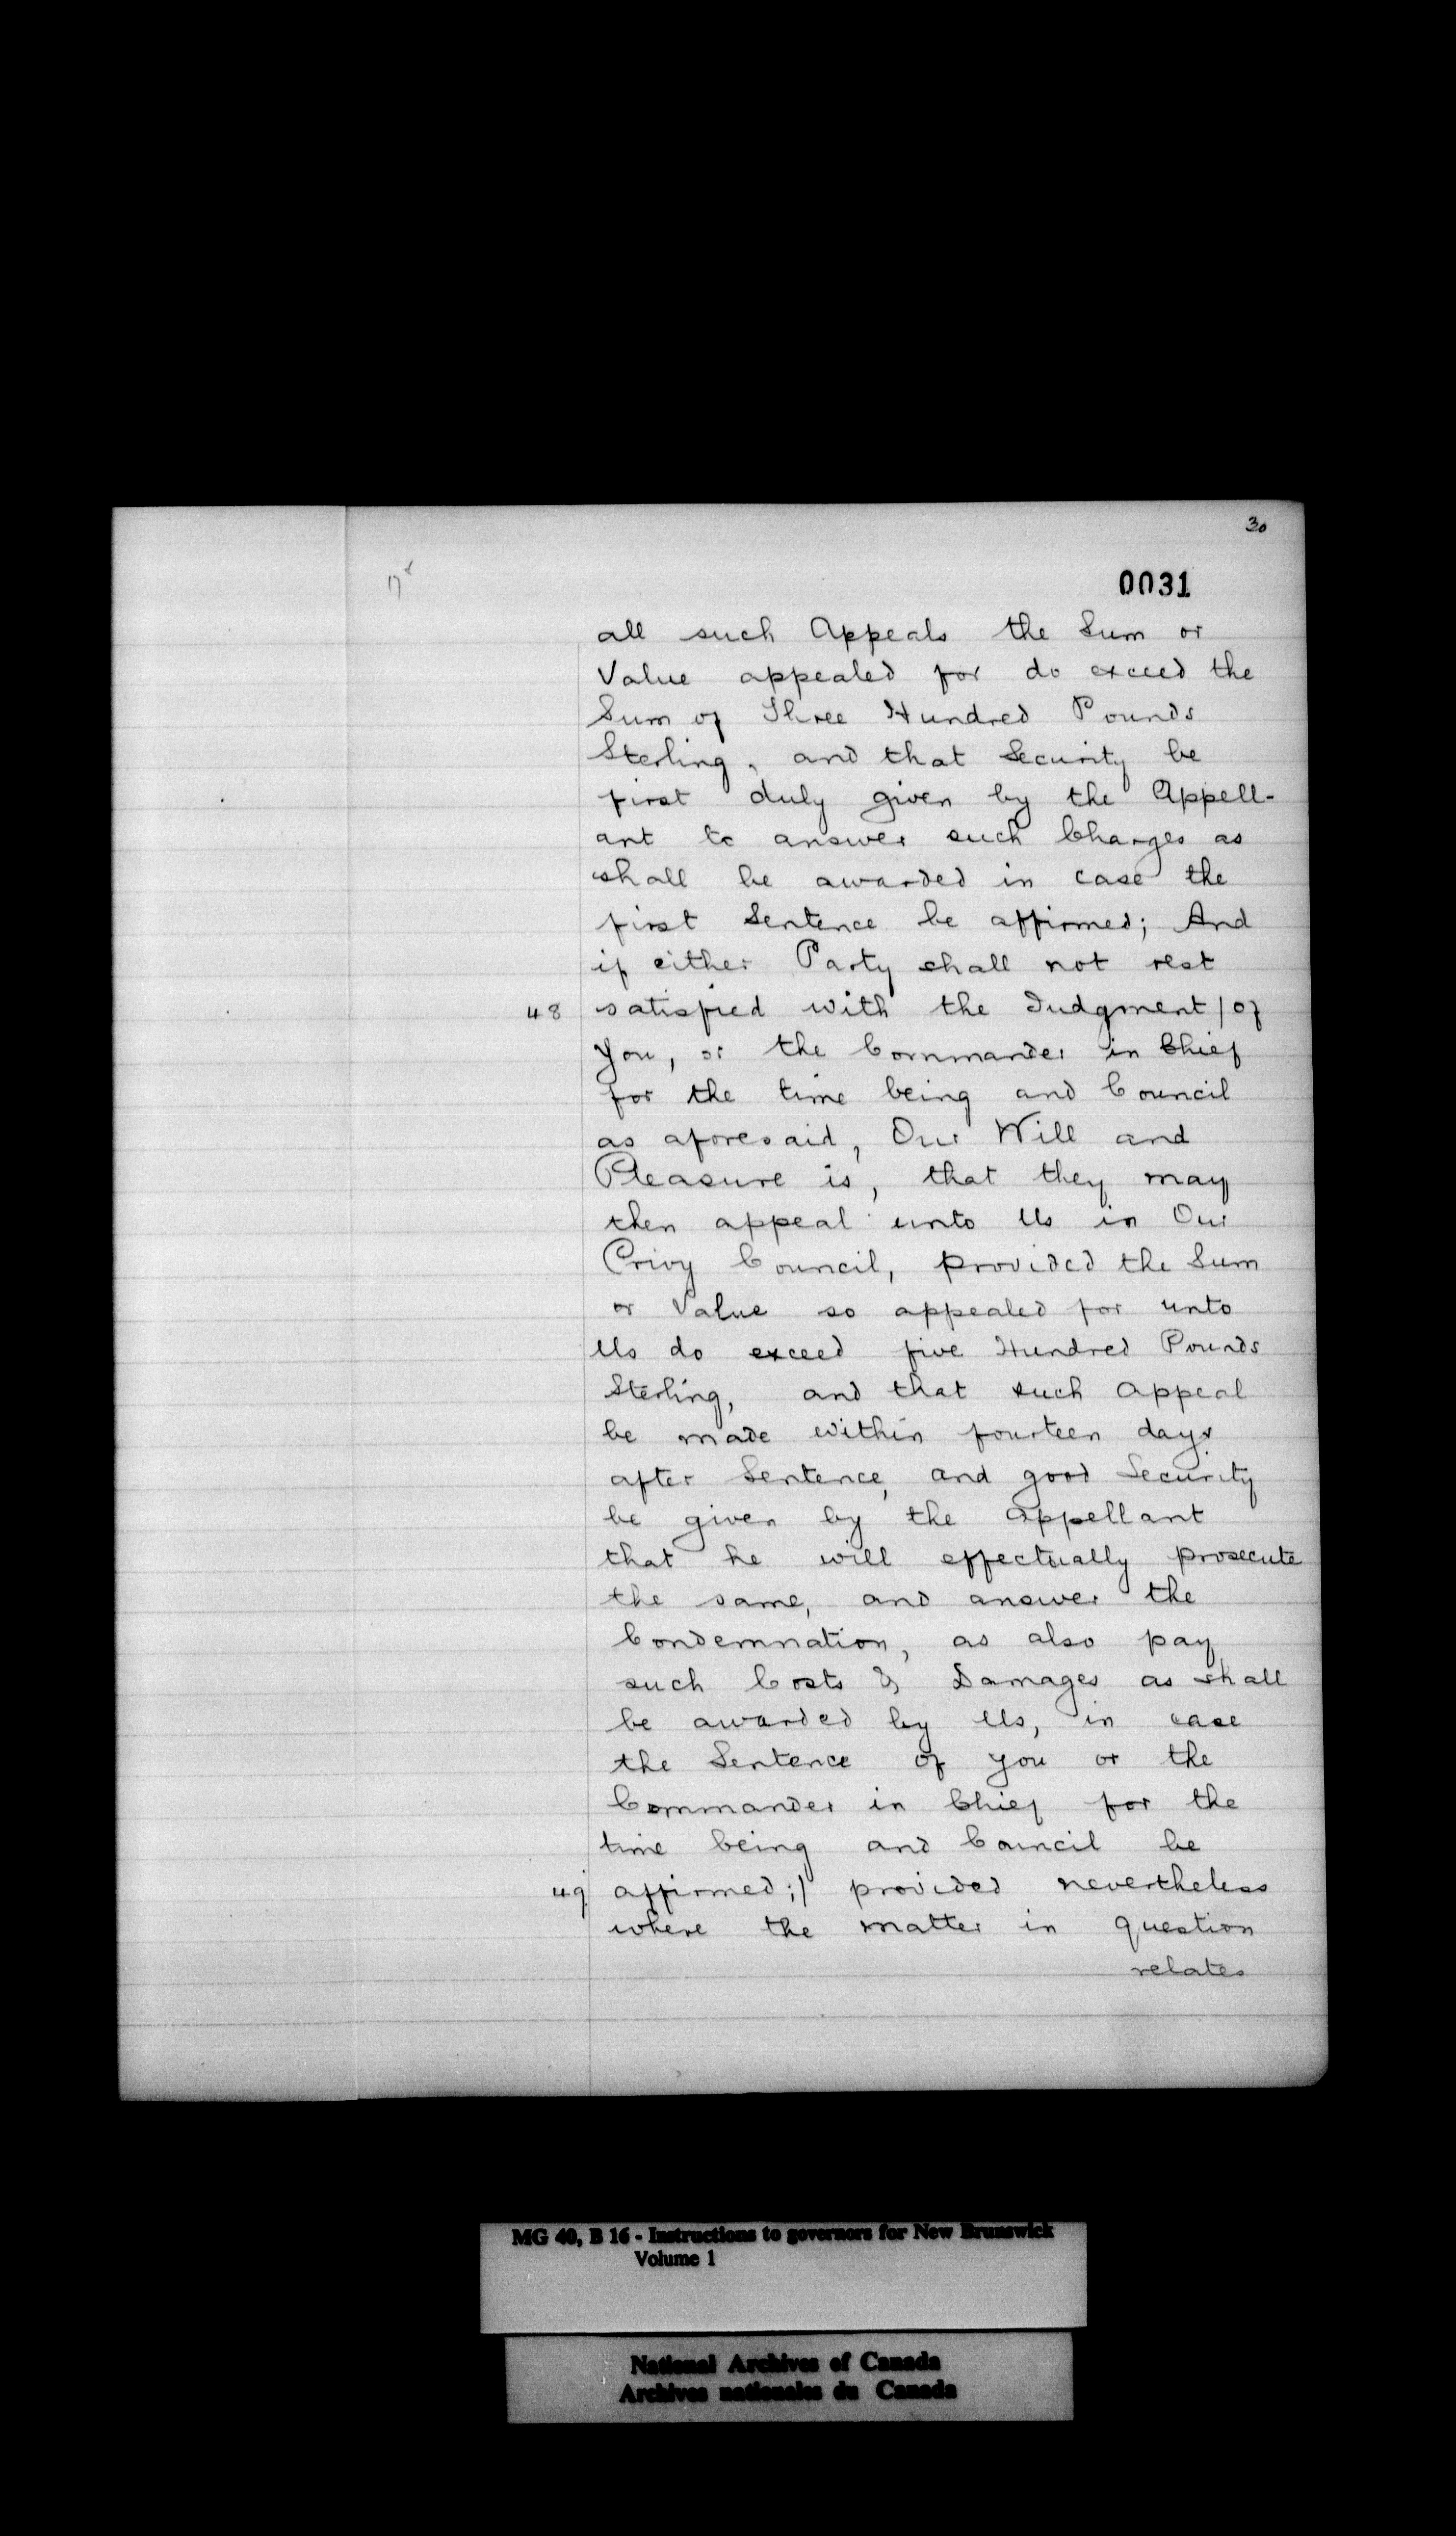 30
0031
all such Appeals the Sum or
Value appealed for do exceed the
Sum of Three Hundred Pounds
Sterling, and that Security be
first duly given by the Appell-
ant to answer such Charges as
shall be awarded in case the
first Sentence be affirmed; And
if either Party shall not rest
48 satisfied with the Judgment / of
You, or the Commander in Chief
for the time being and Council
as aforesaid, Our Will and
Pleasure is, that they may
then appeal unto Us in Our
Privy Council, provided the Sum
or Value so appealed for unto
Us do exceed five Hundred Pounds
Sterling, and that such appeal
be made within fourteen days
after Sentence, and good Security
be given by the appellant
that he will effectually prosecute
the same, and answer the
Condemnation, as also pay
such Costs & Damages as shall
be awarded by Us, in case
the Sentence of you or the
Commander in Chief for the
time being and Council be
49 affirmed; / provided nevertheless
where the matter in question
relates
MG 40, B 16 - Instructions to governors for New Brunswick
Volume 1
National Archives of Canada
Archives nationales du Canada